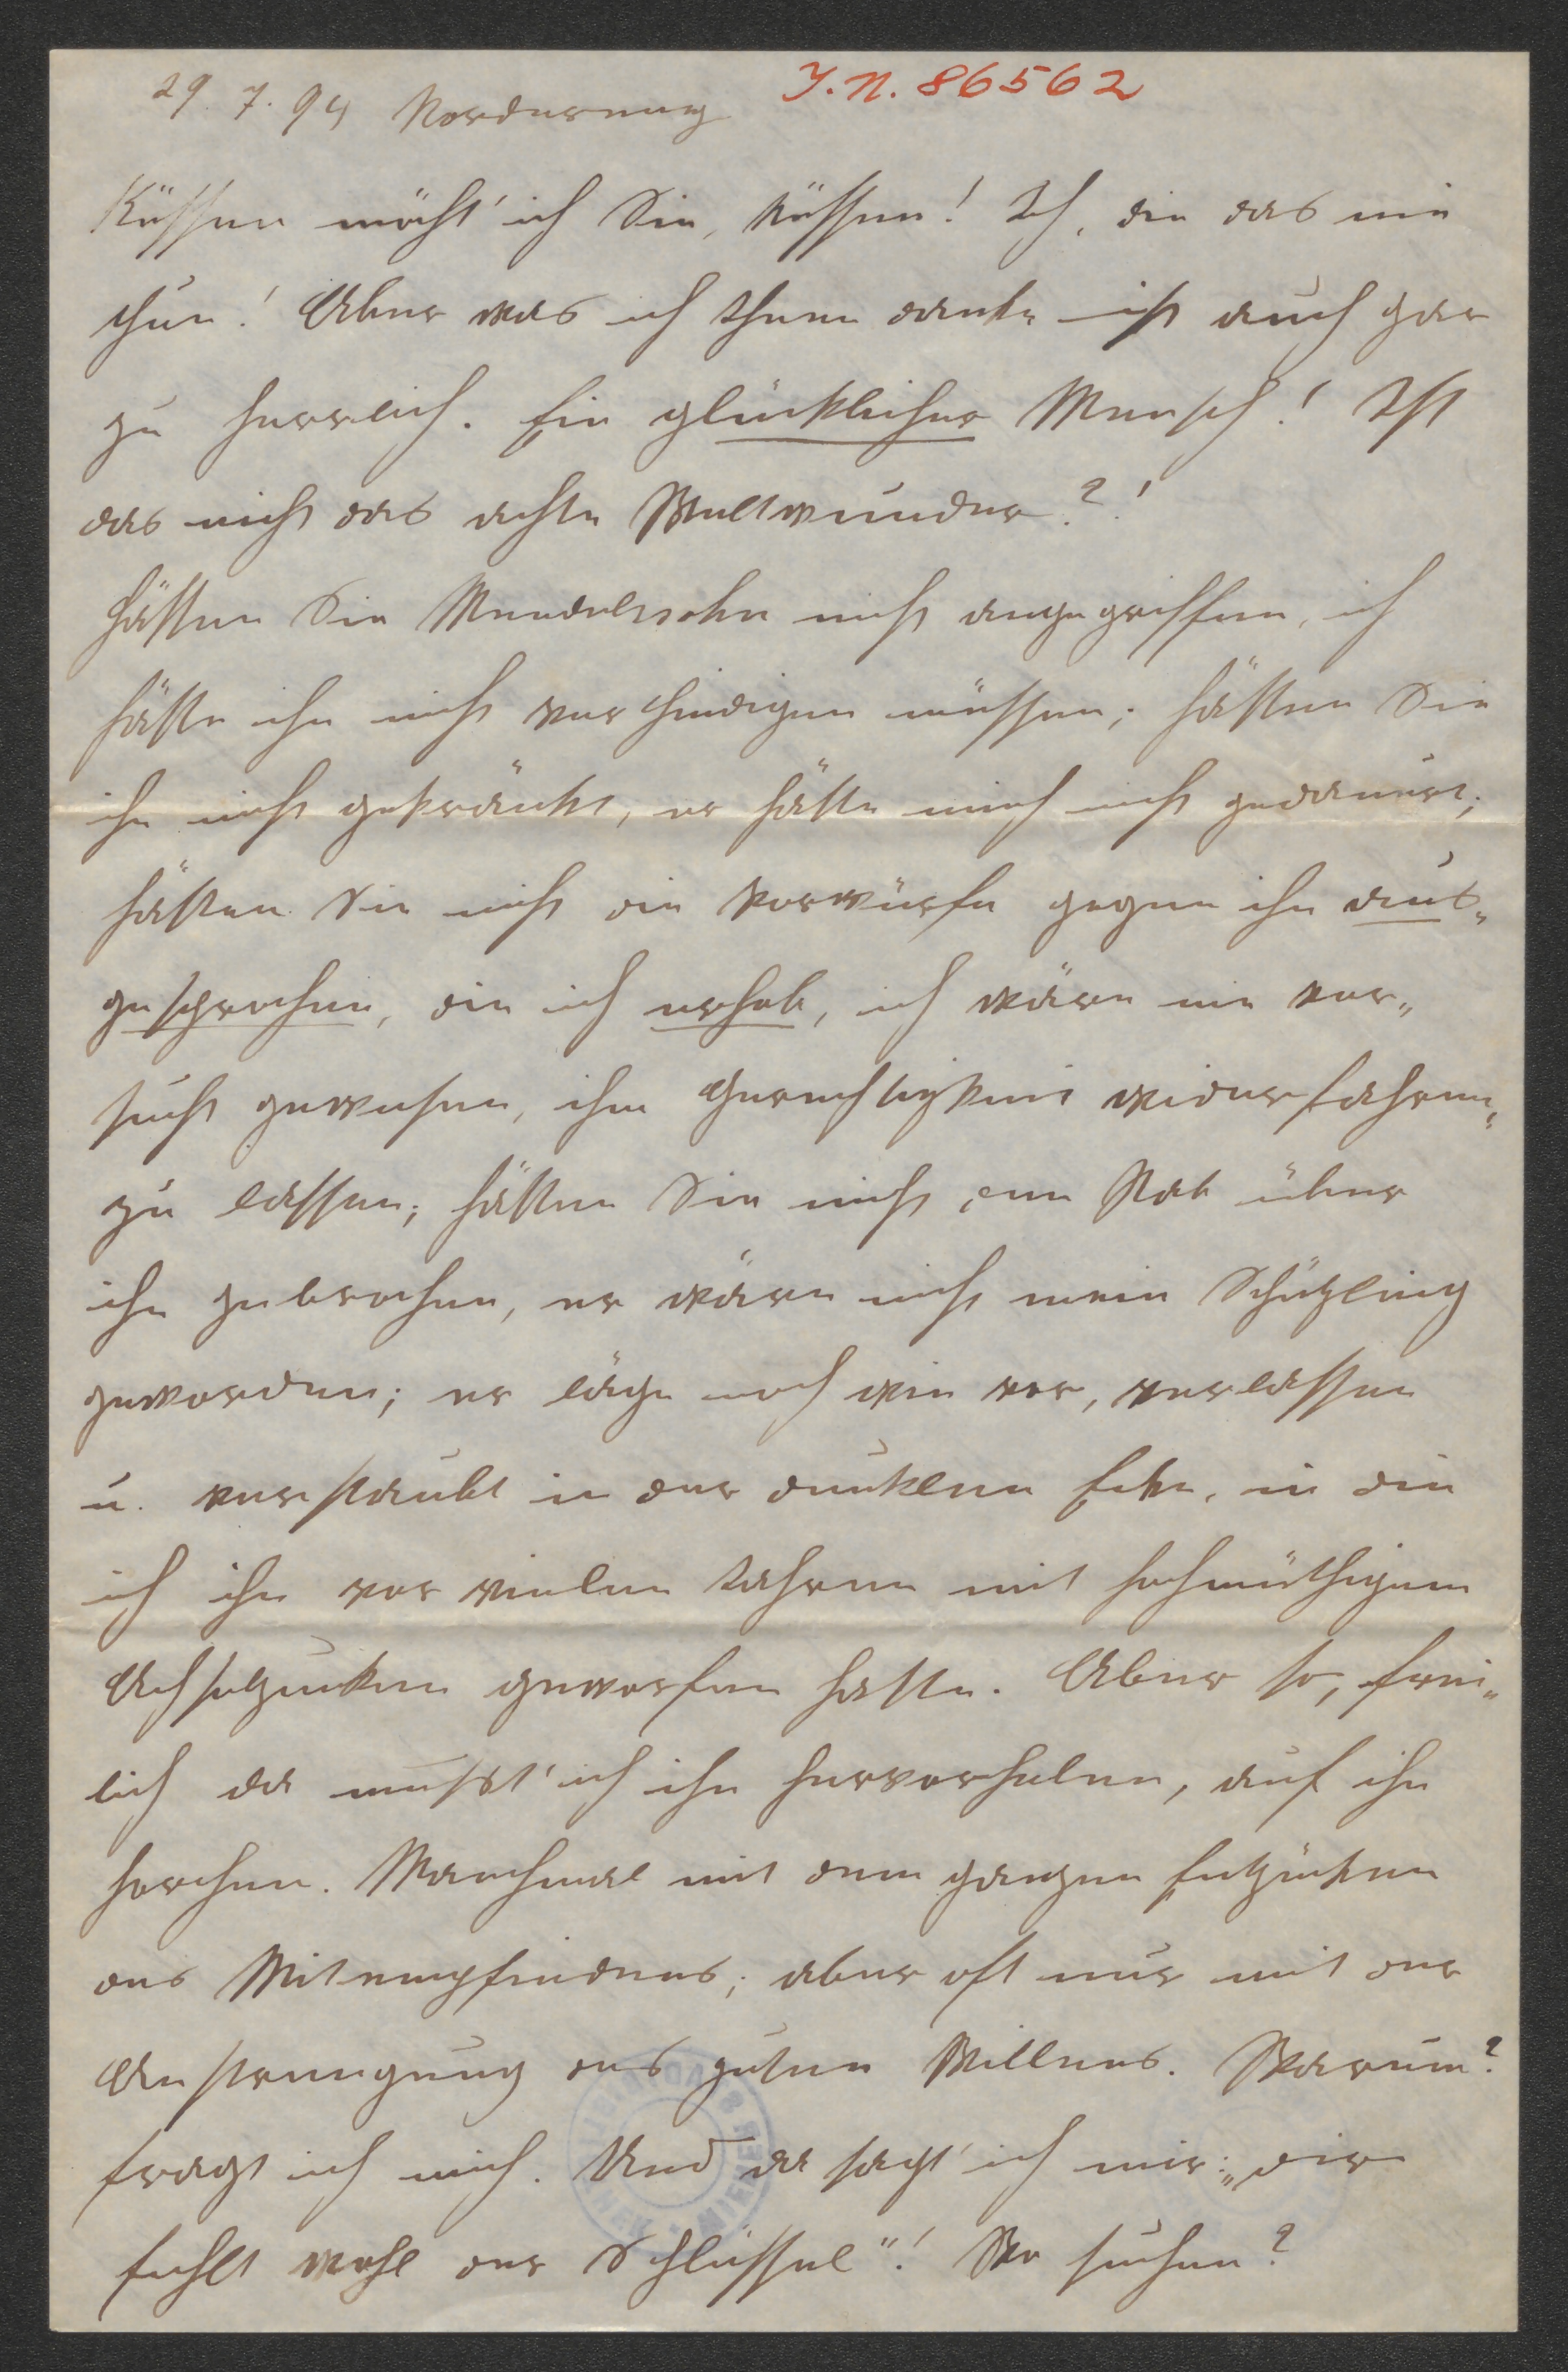 29. 7. 94 Vordernberg
J. N. 86562
Küssen möcht' ich Sie, küssen! Ich, die das nie
thue! Aber was ich Ihnen danke ist auch gar
zu herrlich. Ein glücklicher Mensch! Ist
das nicht das achte Weltwunder?!
Hätten Sie Mendelssohn nicht angegriffen, ich
hätte ihn nicht vertheidigen müssen; hätten Sie
ihn nicht gekränkt, er hätte mich nicht gedauert;
hätten Sie nicht die Vorwürfe gegen ihn aus„
gesprochen, die ich erhob, ich wäre nie ver„
sucht gewesen, ihm Gerechtigkeit widerfahren
zu lassen; hätten Sie nicht den Stab über
ihn gebrochen, er wäre nicht mein Schützling
geworden; er läge noch wie vor, verlassen
u. verstaubt in der dunklen Ecke, in die
ich ihn vor vielen Jahren mit hochmüthigem
Achselzucken geworfen hatte. Aber so, frei„
lich da musst' ich ihn hervorholen, auf ihn
horchen. Manchmal mit dem ganzen Entzücken
des Mitempfindens; aber oft nur mit der
Anstrengung des guten Willens. Warum?
fragt ich mich. Und da sagt' ich mir: „dir
fehlt wohl der Schlüssel"! Wo suchen?